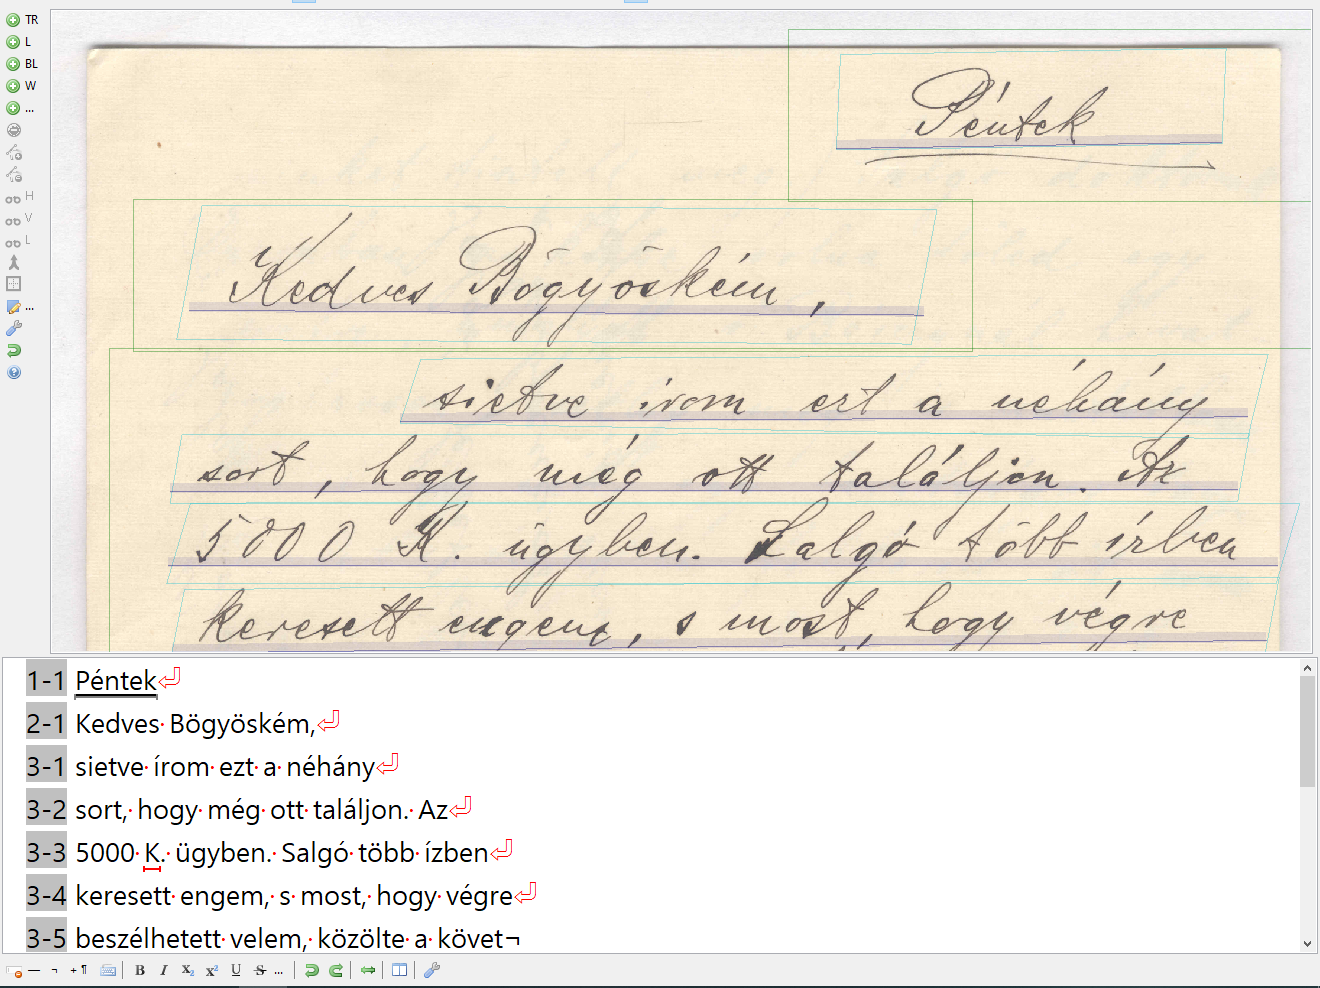 TR
L
BL
W
...
H
V
L
...
Péntek
Kedves Bögyöském,
sietve írom ezt a néhány
sort, hogy még ott találjon. Az
5000 K. ügyben. Salgó több ízben
keresett engem, s most, hogy végre
1-1 Péntek
2-1 Kedves Bögyöském,
3-1 sietve írom ezt a néhány
3-2 sort, hogy még ott találjon. Az
3-3 5000 K. ügyben. Salgó több ízben
3-4 keresett engem, s most, hogy végre
3-5 beszélhetett velem, közölte a követ¬
B I X₂ x² U S ...